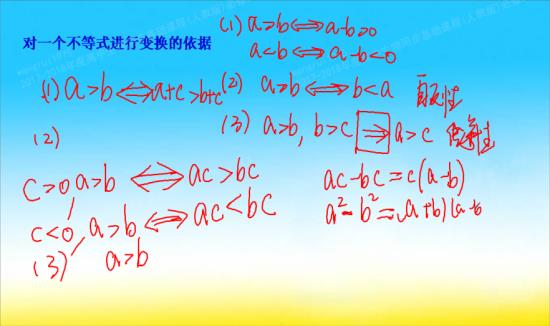 对一个不等式进行变换的依据
(1) a>b⟺a-b>0
a<b⟺a-b<0
(2) a>b⟺b<a
(3) a>b, b>c ⟹ a>c 传递性
(1) a>b⟺a+c>b+c
(2)
c>0 a>b ⟺ ac>bc
c<0, a>b ⟺ ac<bc
(3) a>b
ac-bc=c(a-b)
a²-b²=(a+b)(a-b